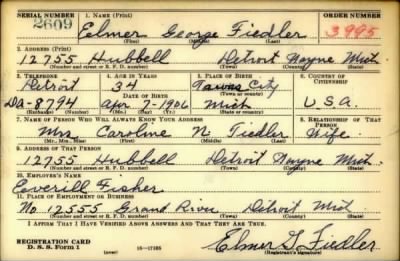 SERIAL NUMBER 1. NAME (Print) ORDER NUMBER
2609 Elmer George Fiedler 3995
(First) (Middle) (Last)
2. ADDRESS (Print)
12755 Hubbell Detroit Wayne Mich
(Number and street or R. F. D. number) (Town) (County) (State)
3. TELEPHONE 4. AGE IN YEARS 5. PLACE OF BIRTH 6. COUNTRY OF CITIZENSHIP
Detroit 34 Tawas City
DATE OF BIRTH (Town or county)
Da-8794 Apr 7-1906 Mich U.S.A.
(Exchange) (Number) (Mo.) (Day) (Yr.) (State or country)
7. NAME OF PERSON WHO WILL ALWAYS KNOW YOUR ADDRESS 8. RELATIONSHIP OF THAT PERSON
Mrs Caroline N Fiedler Wife
(Mr., Mrs., Miss) (First) (Middle) (Last)
9. ADDRESS OF THAT PERSON
12755 Hubbell Detroit Wayne Mich.
(Number and street or R. F. D. number) (Town) (County) (State)
10. EMPLOYER'S NAME
Everill Fisher
11. PLACE OF EMPLOYMENT OR BUSINESS
No 12555 Grand River Detroit Mich
(Number and street or R. F. D. number) (Town) (County) (State)
I AFFIRM THAT I HAVE VERIFIED ABOVE ANSWERS AND THAT THEY ARE TRUE.
REGISTRATION CARD
D. S. S. FORM 1 16-17105 Elmer G Fiedler
(Registrant's signature)